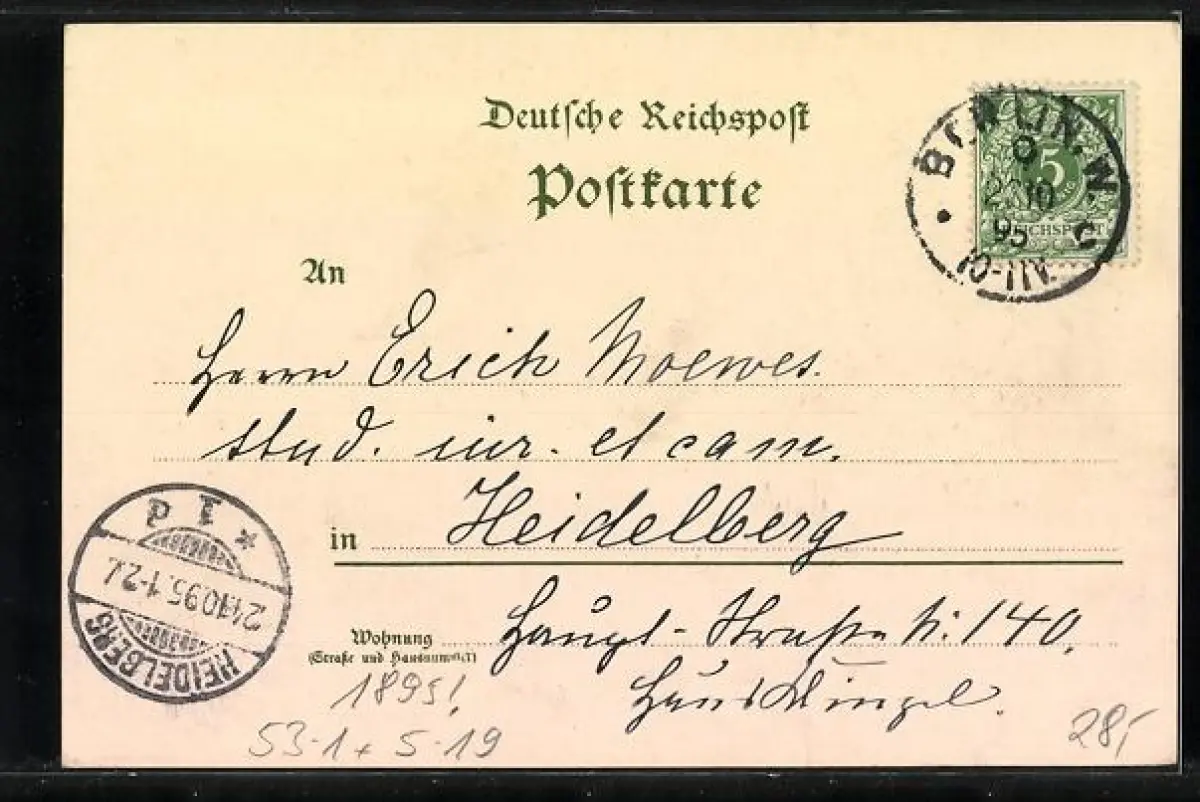 Deutsche Reichspost
Postkarte
BERLIN. W.
9
95
10-11V.
5
REICHSPOST
An
Herrn Erich Moewes.
stud. iur. et cam.
in Heidelberg
Wohnung
(Straße und Hausnummer)
Haupt-Straße N: 140,
Haus
HEIDELBERG
21.10.95.1-2
1895!
53-1 + 5-19
28,-